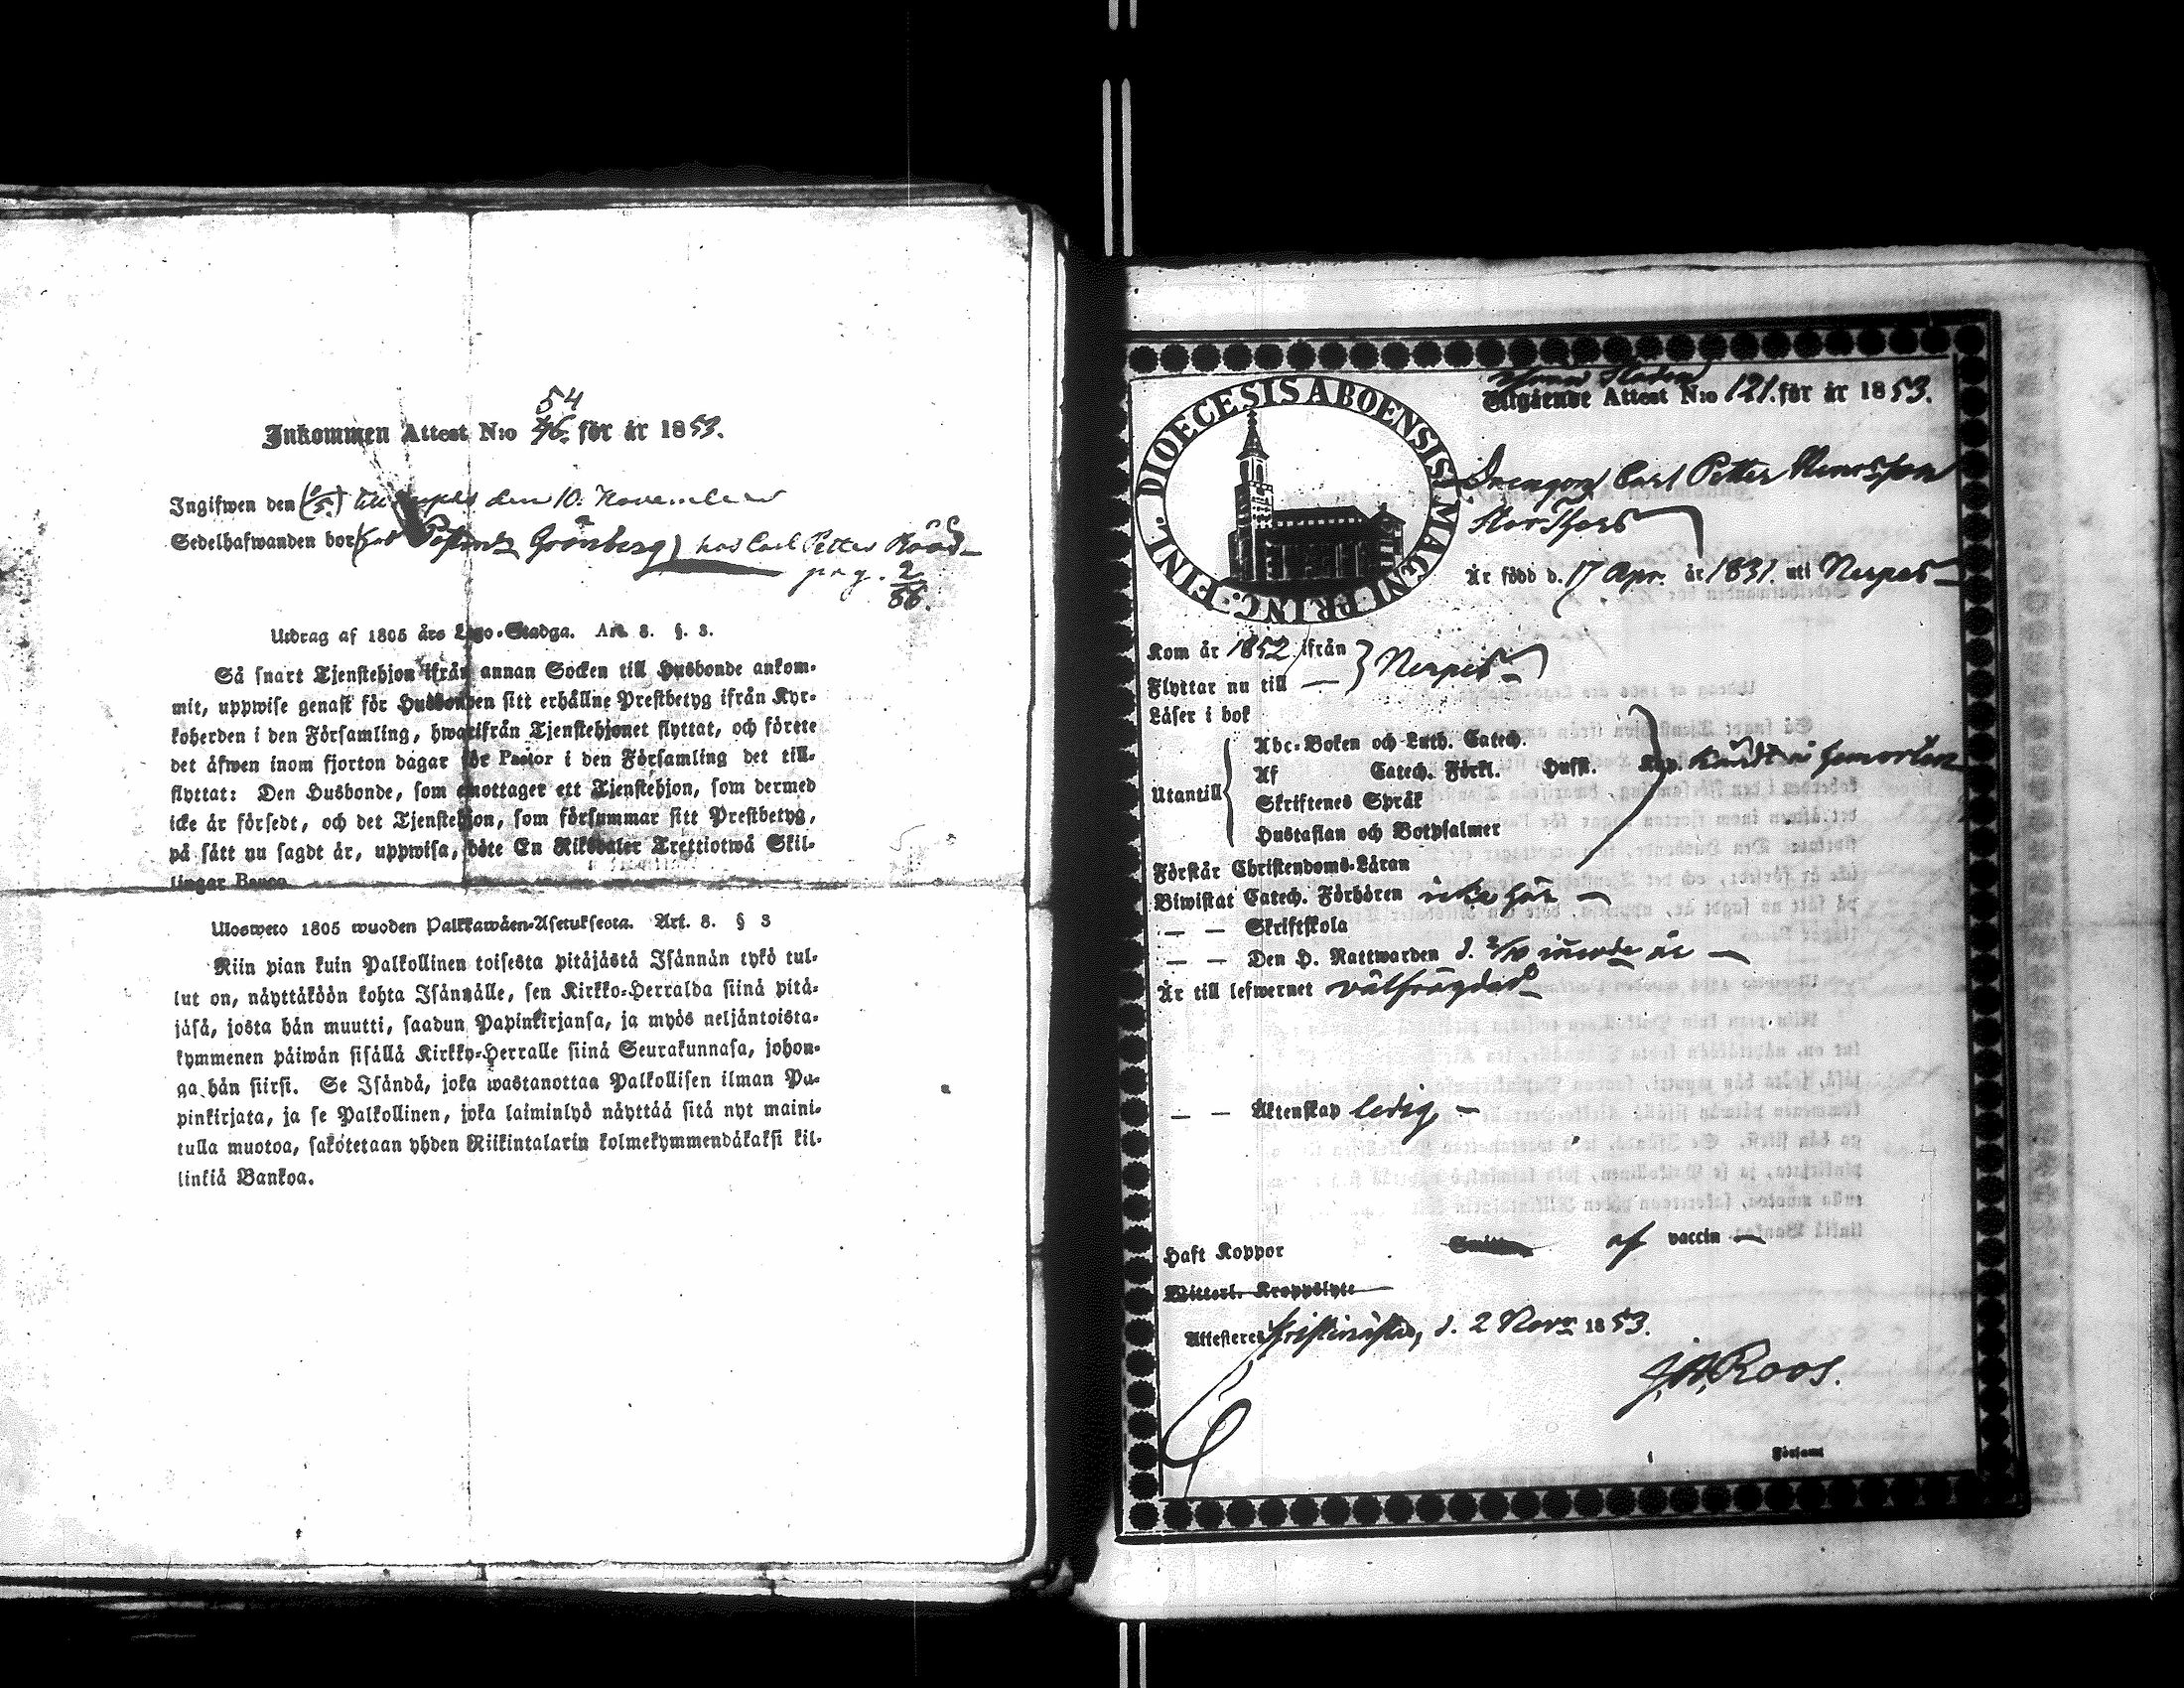 54
Inkommen Attest N:o 46. för år 1853.
Ingifwen den den 10. November
Sedelhafwanden bor Grönberg) hos Carl Petter
pag. 2/86.
Utdrag af 1805 års Lego-Stadga. Art. 8. §. 3.
Så snart Tjenstehjon ifrån annan Socken till Husbonde ankom-
mit, uppwise genast för Husbonden sitt erhållne Prestbetyg ifrån Kyr-
koherden i den Församling, hwarifrån Tjenstehjonet flyttat, och förete
det äfwen inom fjorton dagar för Pastor i den Församling det till-
flyttat: Den Husbonde, som emottager ett Tjenstehjon, som dermed
icke är försedt, och det Tjenstehjon, som försummar sitt Prestbetyg,
på sätt nu sagdt är, uppwisa, böte En Riksdaler Trettiotwå Skil-
lingar Banco.
Ulosweto 1805 wuoden Palkkawäen-Asetuksesta. Art. 8. § 3
Niin pian kuin Palkollinen toisesta pitäjästä Isännän tykö tul-
lut on, näyttäköön kohta Isännälle, sen Kirkko-Herralda siinä pitä-
jäsä, josta hän muutti, saadun Papinkirjansa, ja myös neljäntoista-
kymmenen päiwän sisällä Kirkko-Herralle siinä Seurakunnasa, johon-
ga hän siirsi. Se Isändä, joka wastanottaa Palkollisen ilman Pa-
pinkirjata, ja se Palkollinen, joka laiminlyö näyttää sitä nyt maini-
tulla muotoa, sakotetaan yhden Riikintalarin kolmekymmendäkaksi kil-
linkiä Bankoa.
DIOECESIS ABOENSIS MAGNI PRINC. FINL.
Utgående Attest N:o 121. för år 1853.
Drengen Carl Petter
Är född d. 17 Apr. år 1831. uti Nerpes
Kom år 1852 ifrån
Flyttar nu till — } Nerpes
Läser i bok
Abc-Boken och Luth. Catech.
Af Catech. Förkl. Husft. Kap.
Utantill
Skriftenes Språk
Hustaflan och Botpsalmer
Förstår Christendoms-Läran
Biwistat Catech. Förhören icke här —
— — Skriftskola
— — Den H. Nattwarden d. 2/10 år —
Är till lefwernet välfrägdad
— — Äktenskap ledig —
Haft Koppor af vaccin —
Witterl. Kroppslyte
Attesteras d. 2 Novr 1853.
J. W. Roos.
i Församl